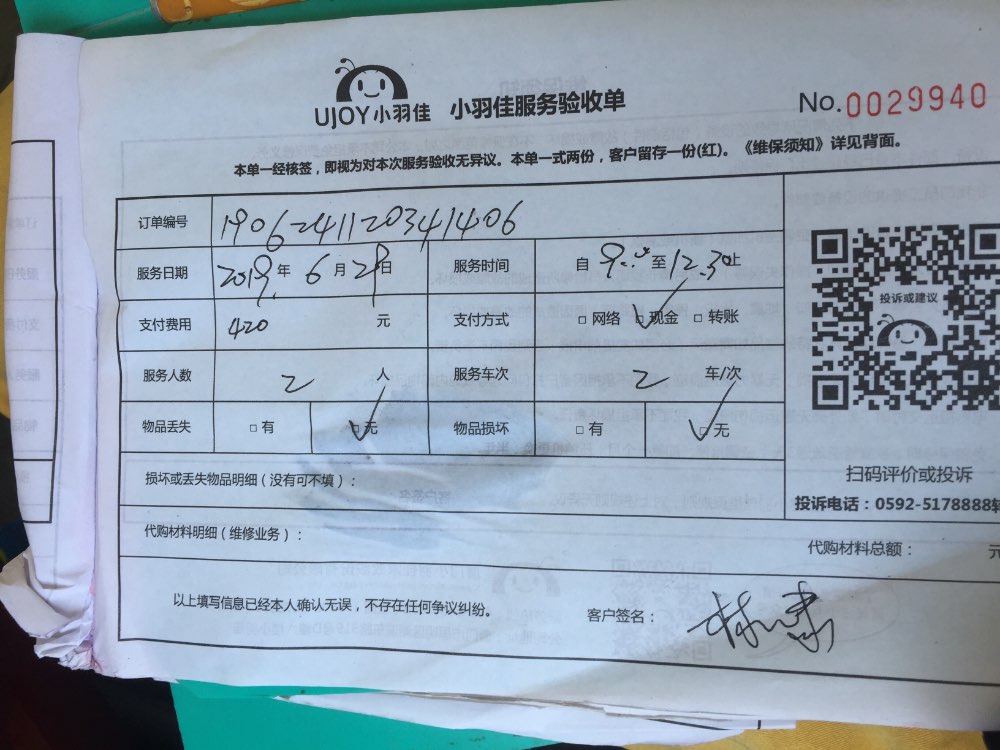 UJOY小羽佳 小羽佳服务验收单 No.0029940
本单一经核签，即视为对本次服务验收无异议。本单一式两份，客户留存一份(红)。《维保须知》详见背面。
订单编号 1906241120341406
服务日期 2019年6月29日 服务时间 自9:00至12:30止
支付费用 420 元 支付方式 □网络 ☑现金 □转账
服务人数 2 人 服务车次 2 车/次
物品丢失 □有 ☑无 物品损坏 □有 ☑无
损坏或丢失物品明细（没有可不填）：
代购材料明细（维修业务）：
代购材料总额： 元
投诉或建议
扫码评价或投诉
投诉电话：0592-5178888转
以上填写信息已经本人确认无误，不存在任何争议纠纷。 客户签名：